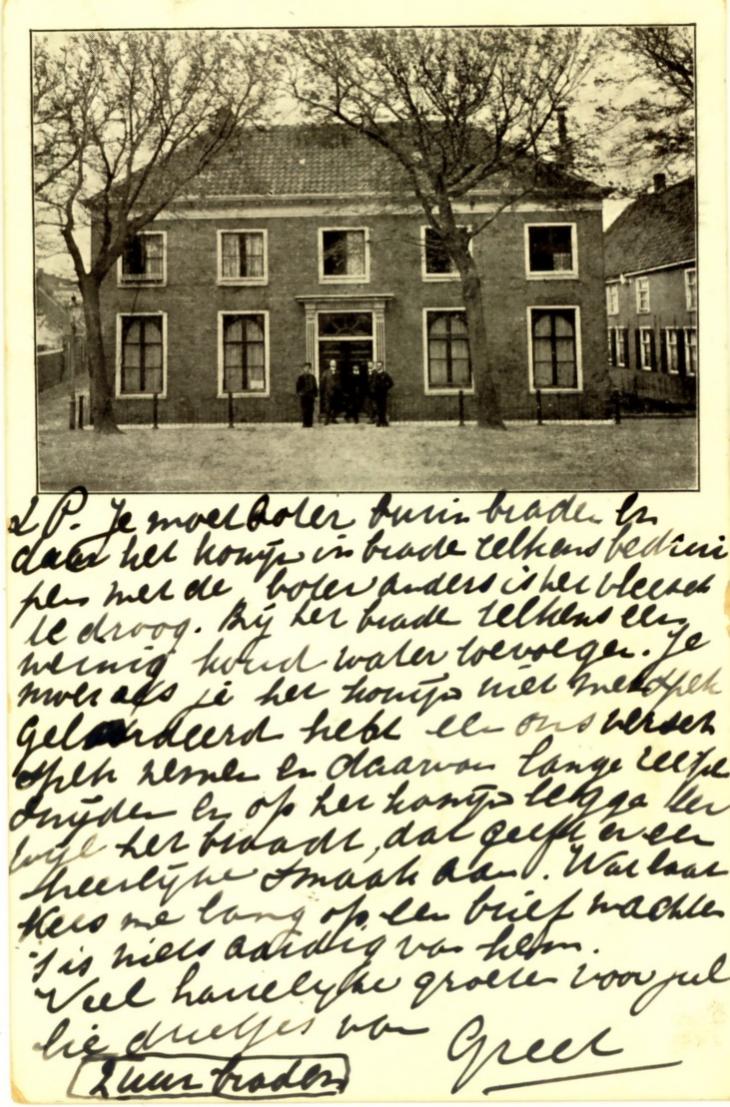 L P. Je moet boter bruin braden en
daar het konijn in brade telkens bedrui
pen met de boter anders is het vleesch
te droog. Bij het brade telkens een
weinig koud water toevoegen. Je
moet als je het konijn niet met spek
gelardeerd hebt een ons versch
spek nemen en daarvan lange reepe
snijden en op het konijn legge ter
wijl het braadt, dat geeft er een
heerlijke smaak aan. Wat laat
Kees me lang op een brief wachten
't is niets aardig van hem.
Veel hartelijke groeten voor jul
lie drietjes van
Greet
2 uur braden